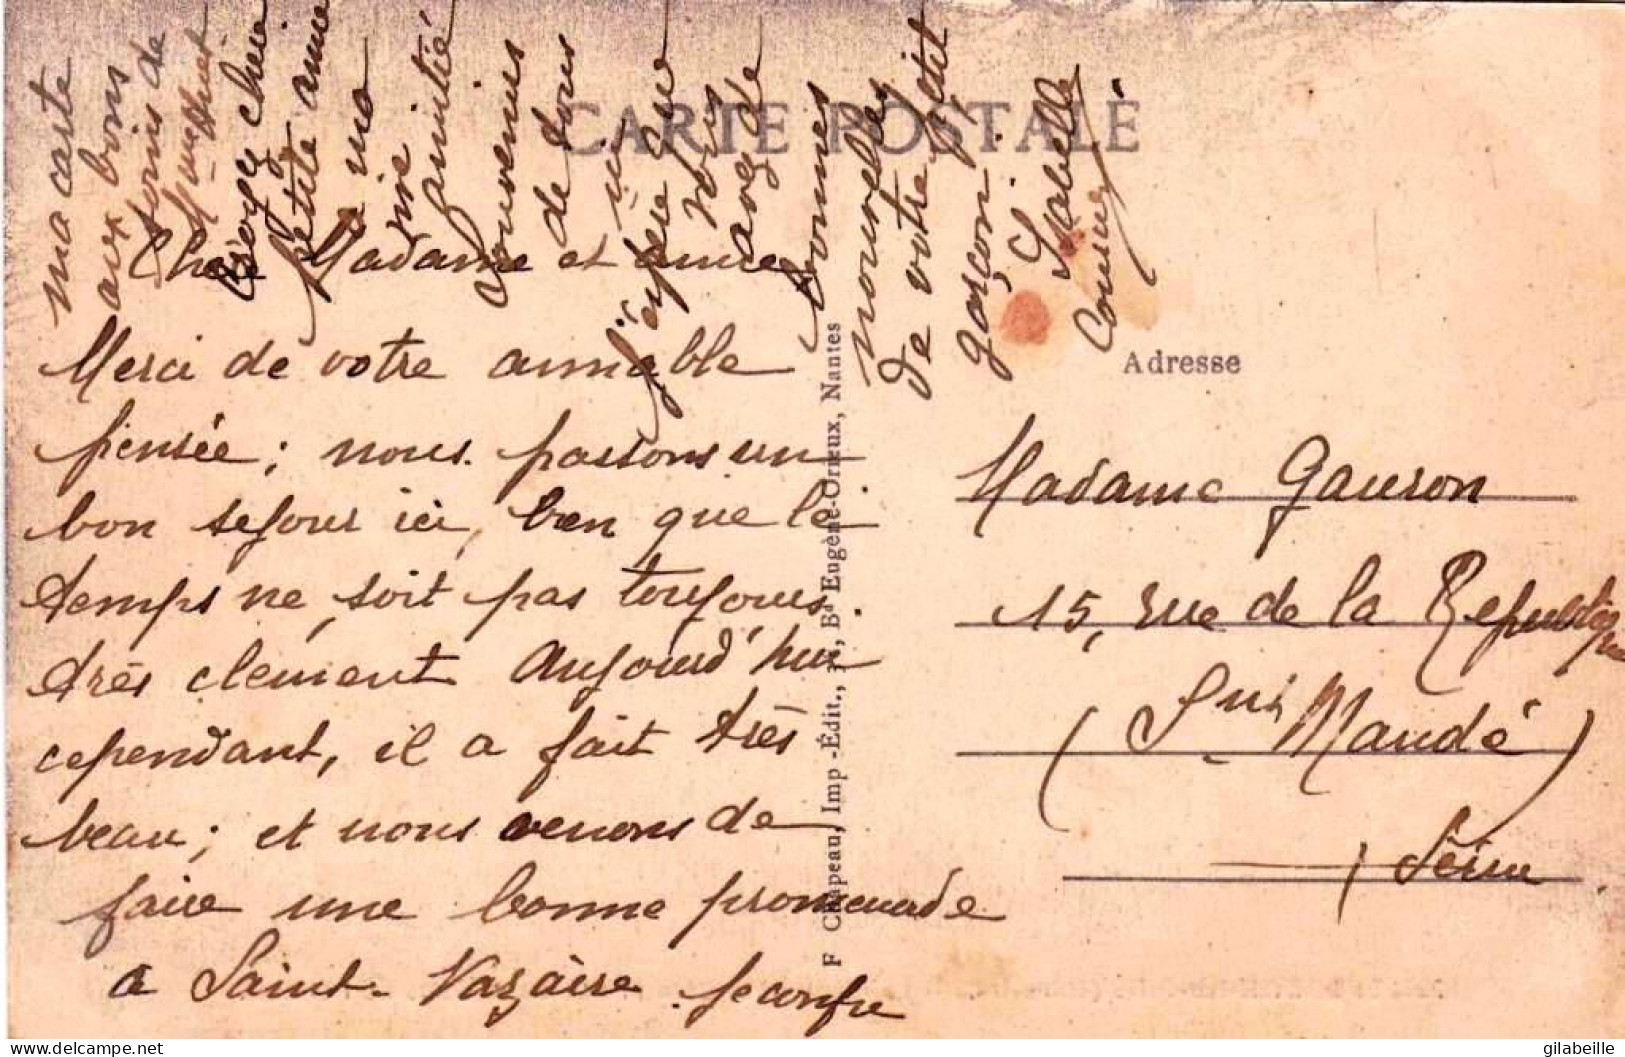 CARTE POSTALE
Chère Madame et amie
Merci de votre aimable
pensée ; nous passons un
bon sejour ici, bien que le
temps ne soit pas toujours
très clement Aujourd'hui
cependant, il a fait très
beau ; et nous venons de
faire une bonne promenade
a Saint-Nazaire. Je confie
ma carte
aux bons
soins de
Mme
Croyez chère
petite amie
a ma
vive
amitié
Souvenirs
de tous
J'espère que
vous
avez de
bonnes
nouvelles
de votre petit
garçon.
Isabelle
F Chapeau, Imp -Édit., Bd Eugène-Orieux, Nantes
Adresse
Madame Gauron
15, rue de la Republique
Maudé
(Seine)
gilabeille